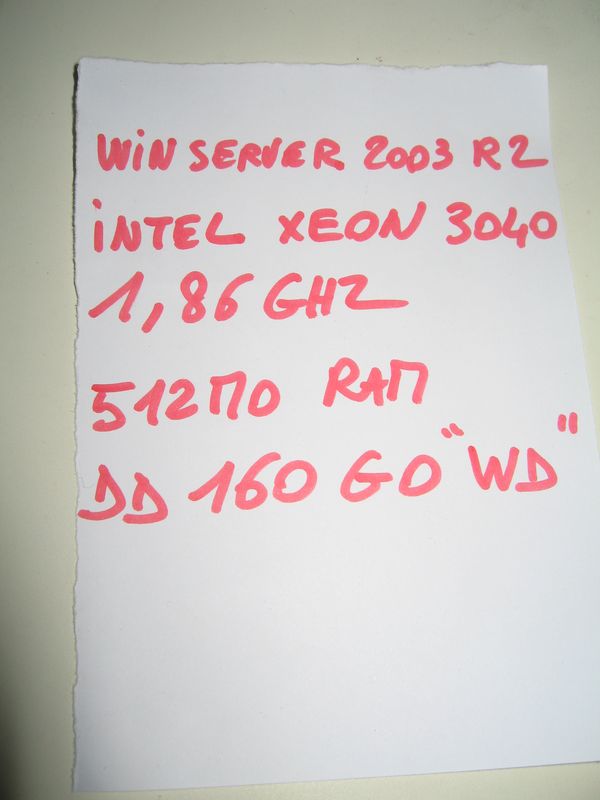 WIN SERVER 2003 R2
INTEL XEON 3040
1,86 GHZ
512MO RAM
DD 160 GO "WD"